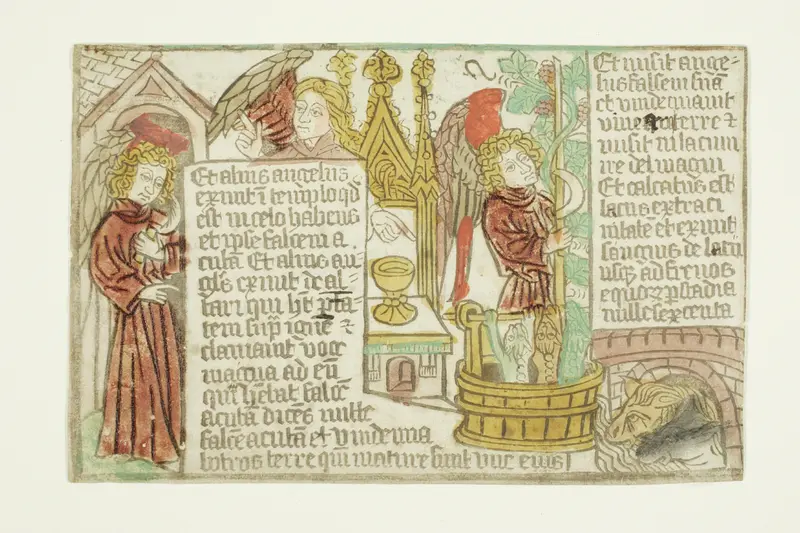 Et alius angelus
exivit ĩ templo qd
est in celo habens
et ipse falcem a
cutã Et alius an-
gls exivit de al-
tari qui hũt ptã
tem sup ignẽ ⁊
clamavit voce
magna ad eũ
qui hẽbat falcẽ
acutã dicẽs mitte
falcẽ acutã et vindemia
botros terre qm̃ mature sunt vue eius
Et misit ange-
lus falcem suã
et vindemiavit
vineã terre ⁊
misit in lacum
ire dei magni
Et calcatus est
lacus extra ci
vitatẽ et exivit
sanguis de lacu
usq; ad frenos
equoꝝ p stadia
mille sexcenta